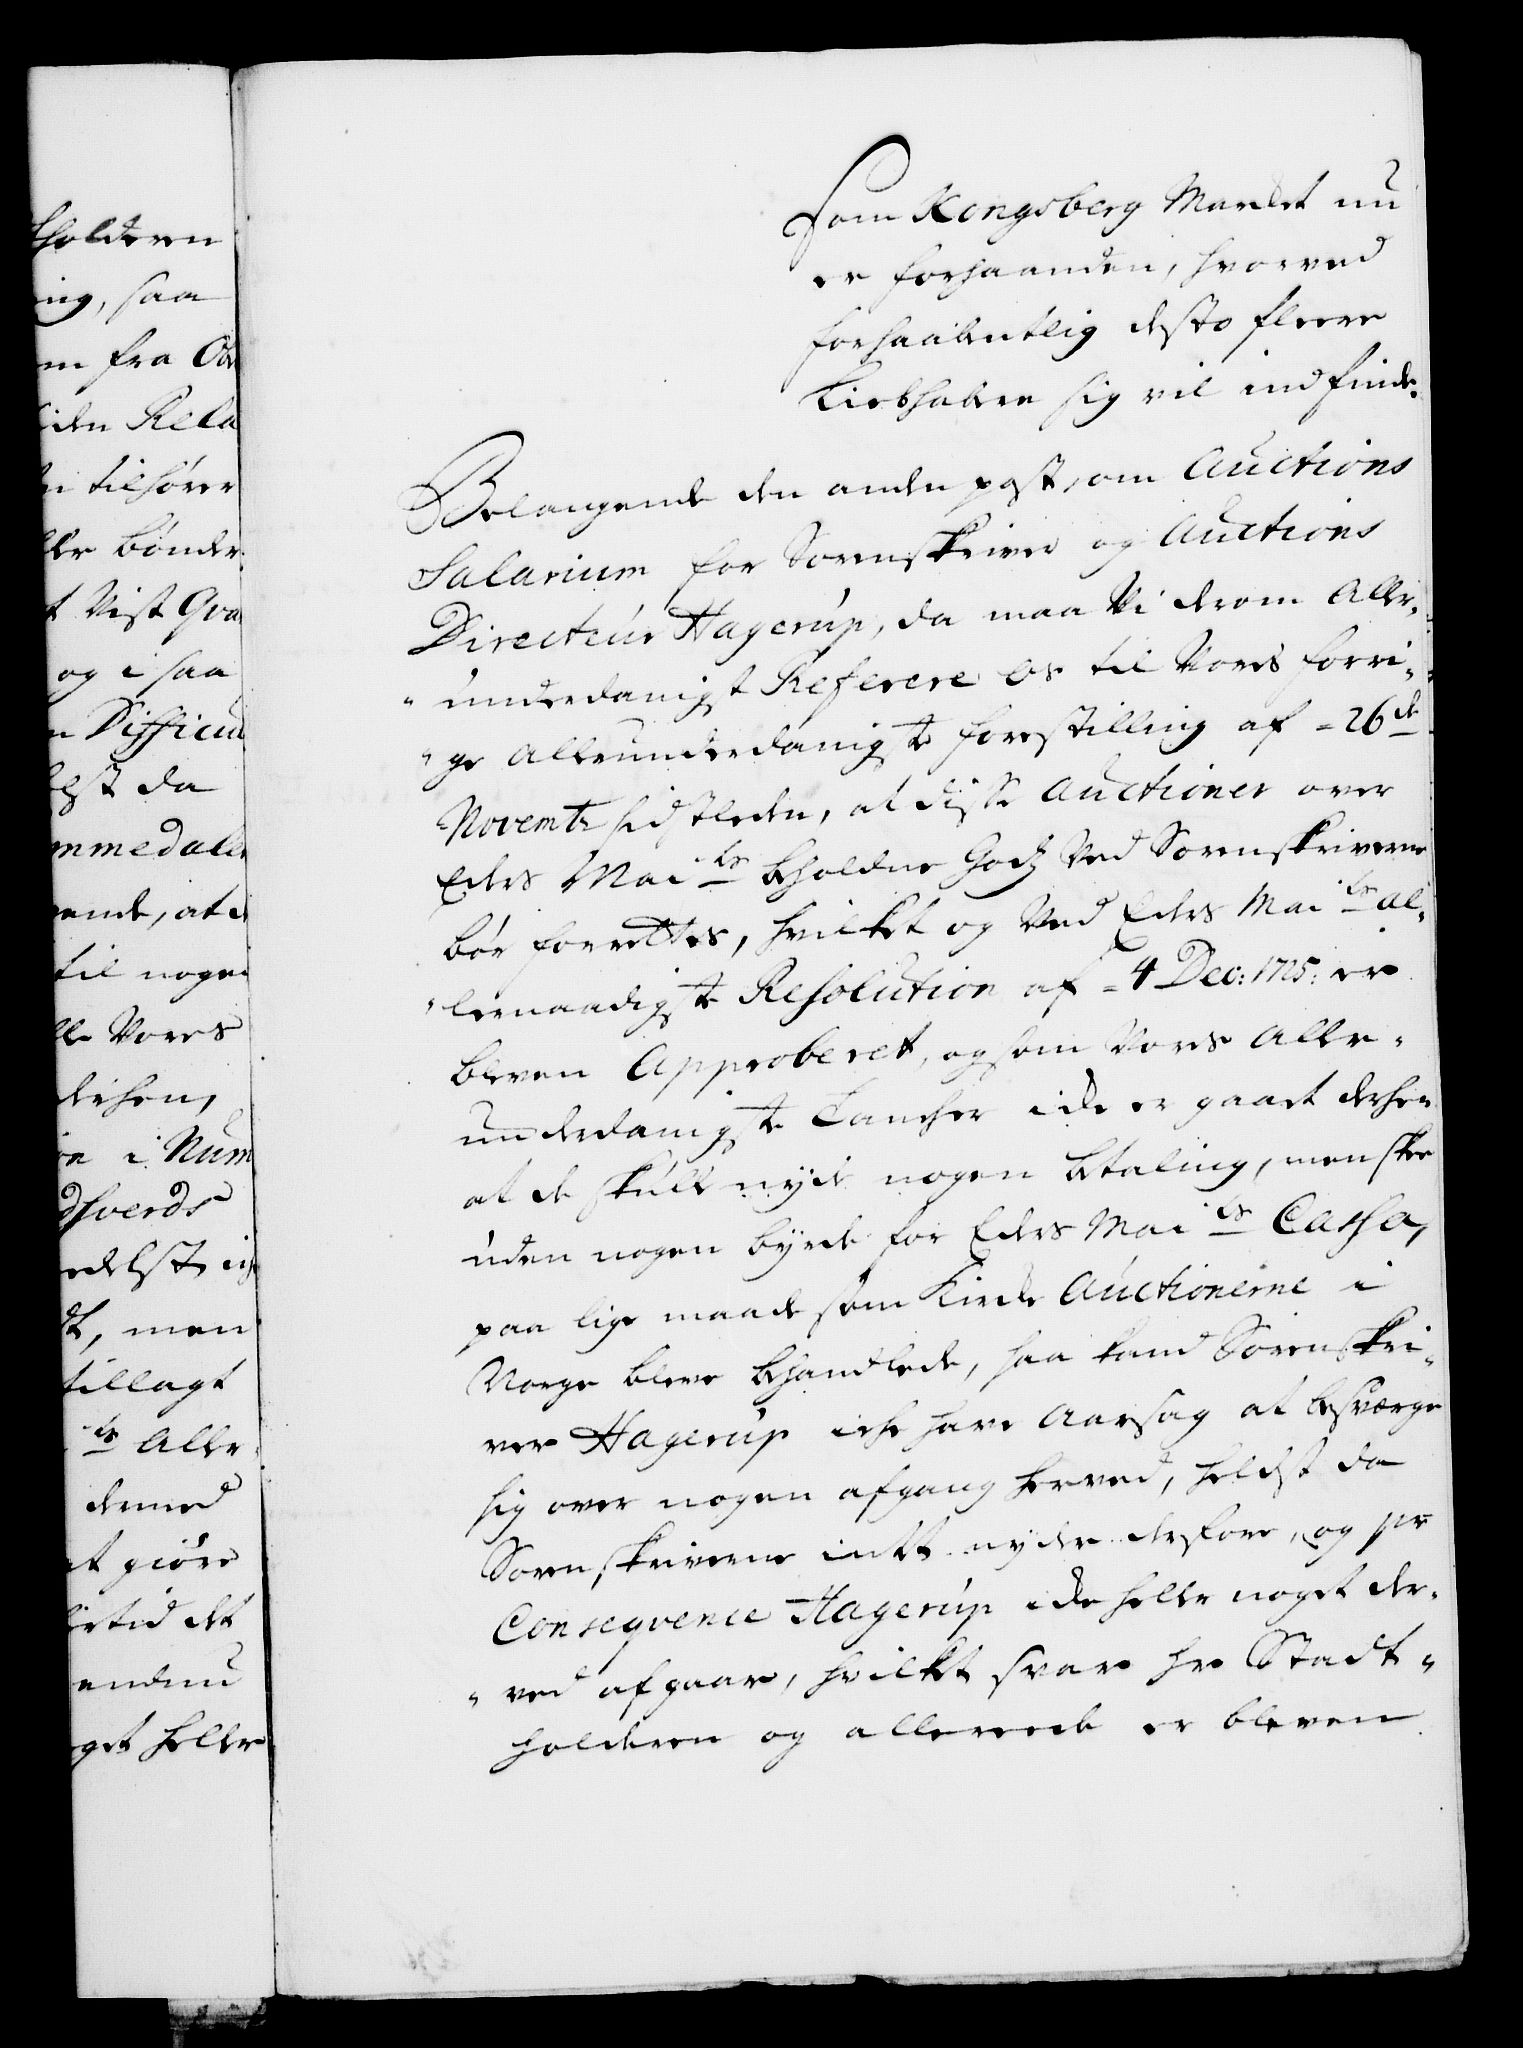 holderen
ing, saa
m fra Ob
iden Rela
n tilhører
ller bønder
t Vist Qva
og i saa
n Difficul
lst da
mmedall
ende, at
til nogen
ll Vores
derhen,
i Num
dsverds
, men
tillagt
ts Aller
dermed
at giøre
tid det
endnu
get heller
Som Kongsberg Marcket nu
er forhaanden, hvorved
forhaabentlig desto fleere
Liebhabere sig vil indfinde.
Belangende den anden post, om Auctions
Salarium for Sorenskriver og Auctions
Directeur Hagerup, da maa Vi derom Aller-
underdanigst Referere os til Vores forri-
ge Allerunderdanigste forestilling af 26de
Novembr sidstleden, at disse Auctioner over
Eders Maits beholdne Godz Ved Sorenskriverne
bør forrettes, hvilket og Ved Eders Maits al-
lernaadigste Resolution af 4 Dec: 1725: er
bleven Approberet, og som Vores Aller-
underdanigste Tancher icke er gaaet derhen
at de skulle nyde nogen betaling, men skee
uden nogen byrde for Eders Maits Cassa,
paa lige maade som Kircke Auctionerne i
Norge bleve behandlede, saa kand Sorenskri-
ver Hagerup icke have Aarsag at besværge
sig over nogen afgang herved, heldst da
Sorenskriverne intet nyder derfore, og pr
Conseqvence Hagerup icke heller noget der-
ved afgaar, hvilket svar hr Stadt-
holderen og allereede er bleven